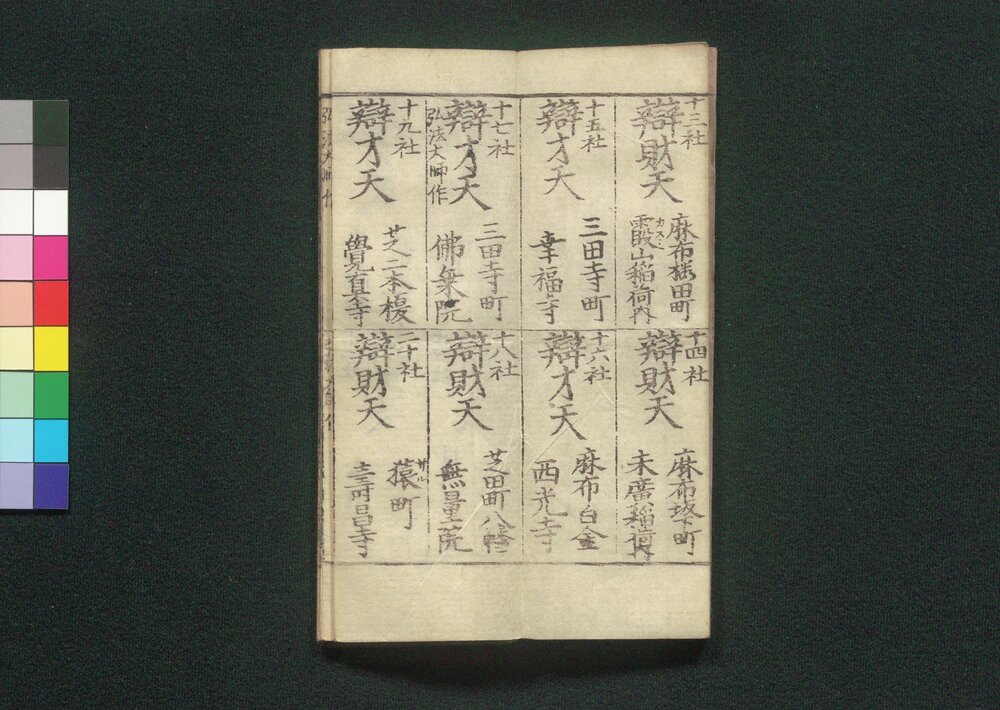 十三社
辯財天
麻布桜田町
霞山稲荷内
十四社
辯財天
麻布坂下町
末廣稲荷内
十五社
辯才天
三田寺町
幸福寺
十六社
辯才天
麻布白金
西光寺
十七社
辯才天
弘法大師作
三田寺町
佛乗院
十八社
辯財天
芝田町八幡
無量院
十九社
辯才天
弘法大師作
芝二本榎
覺真寺
二十社
辯財天
サル
猿町
壽昌寺